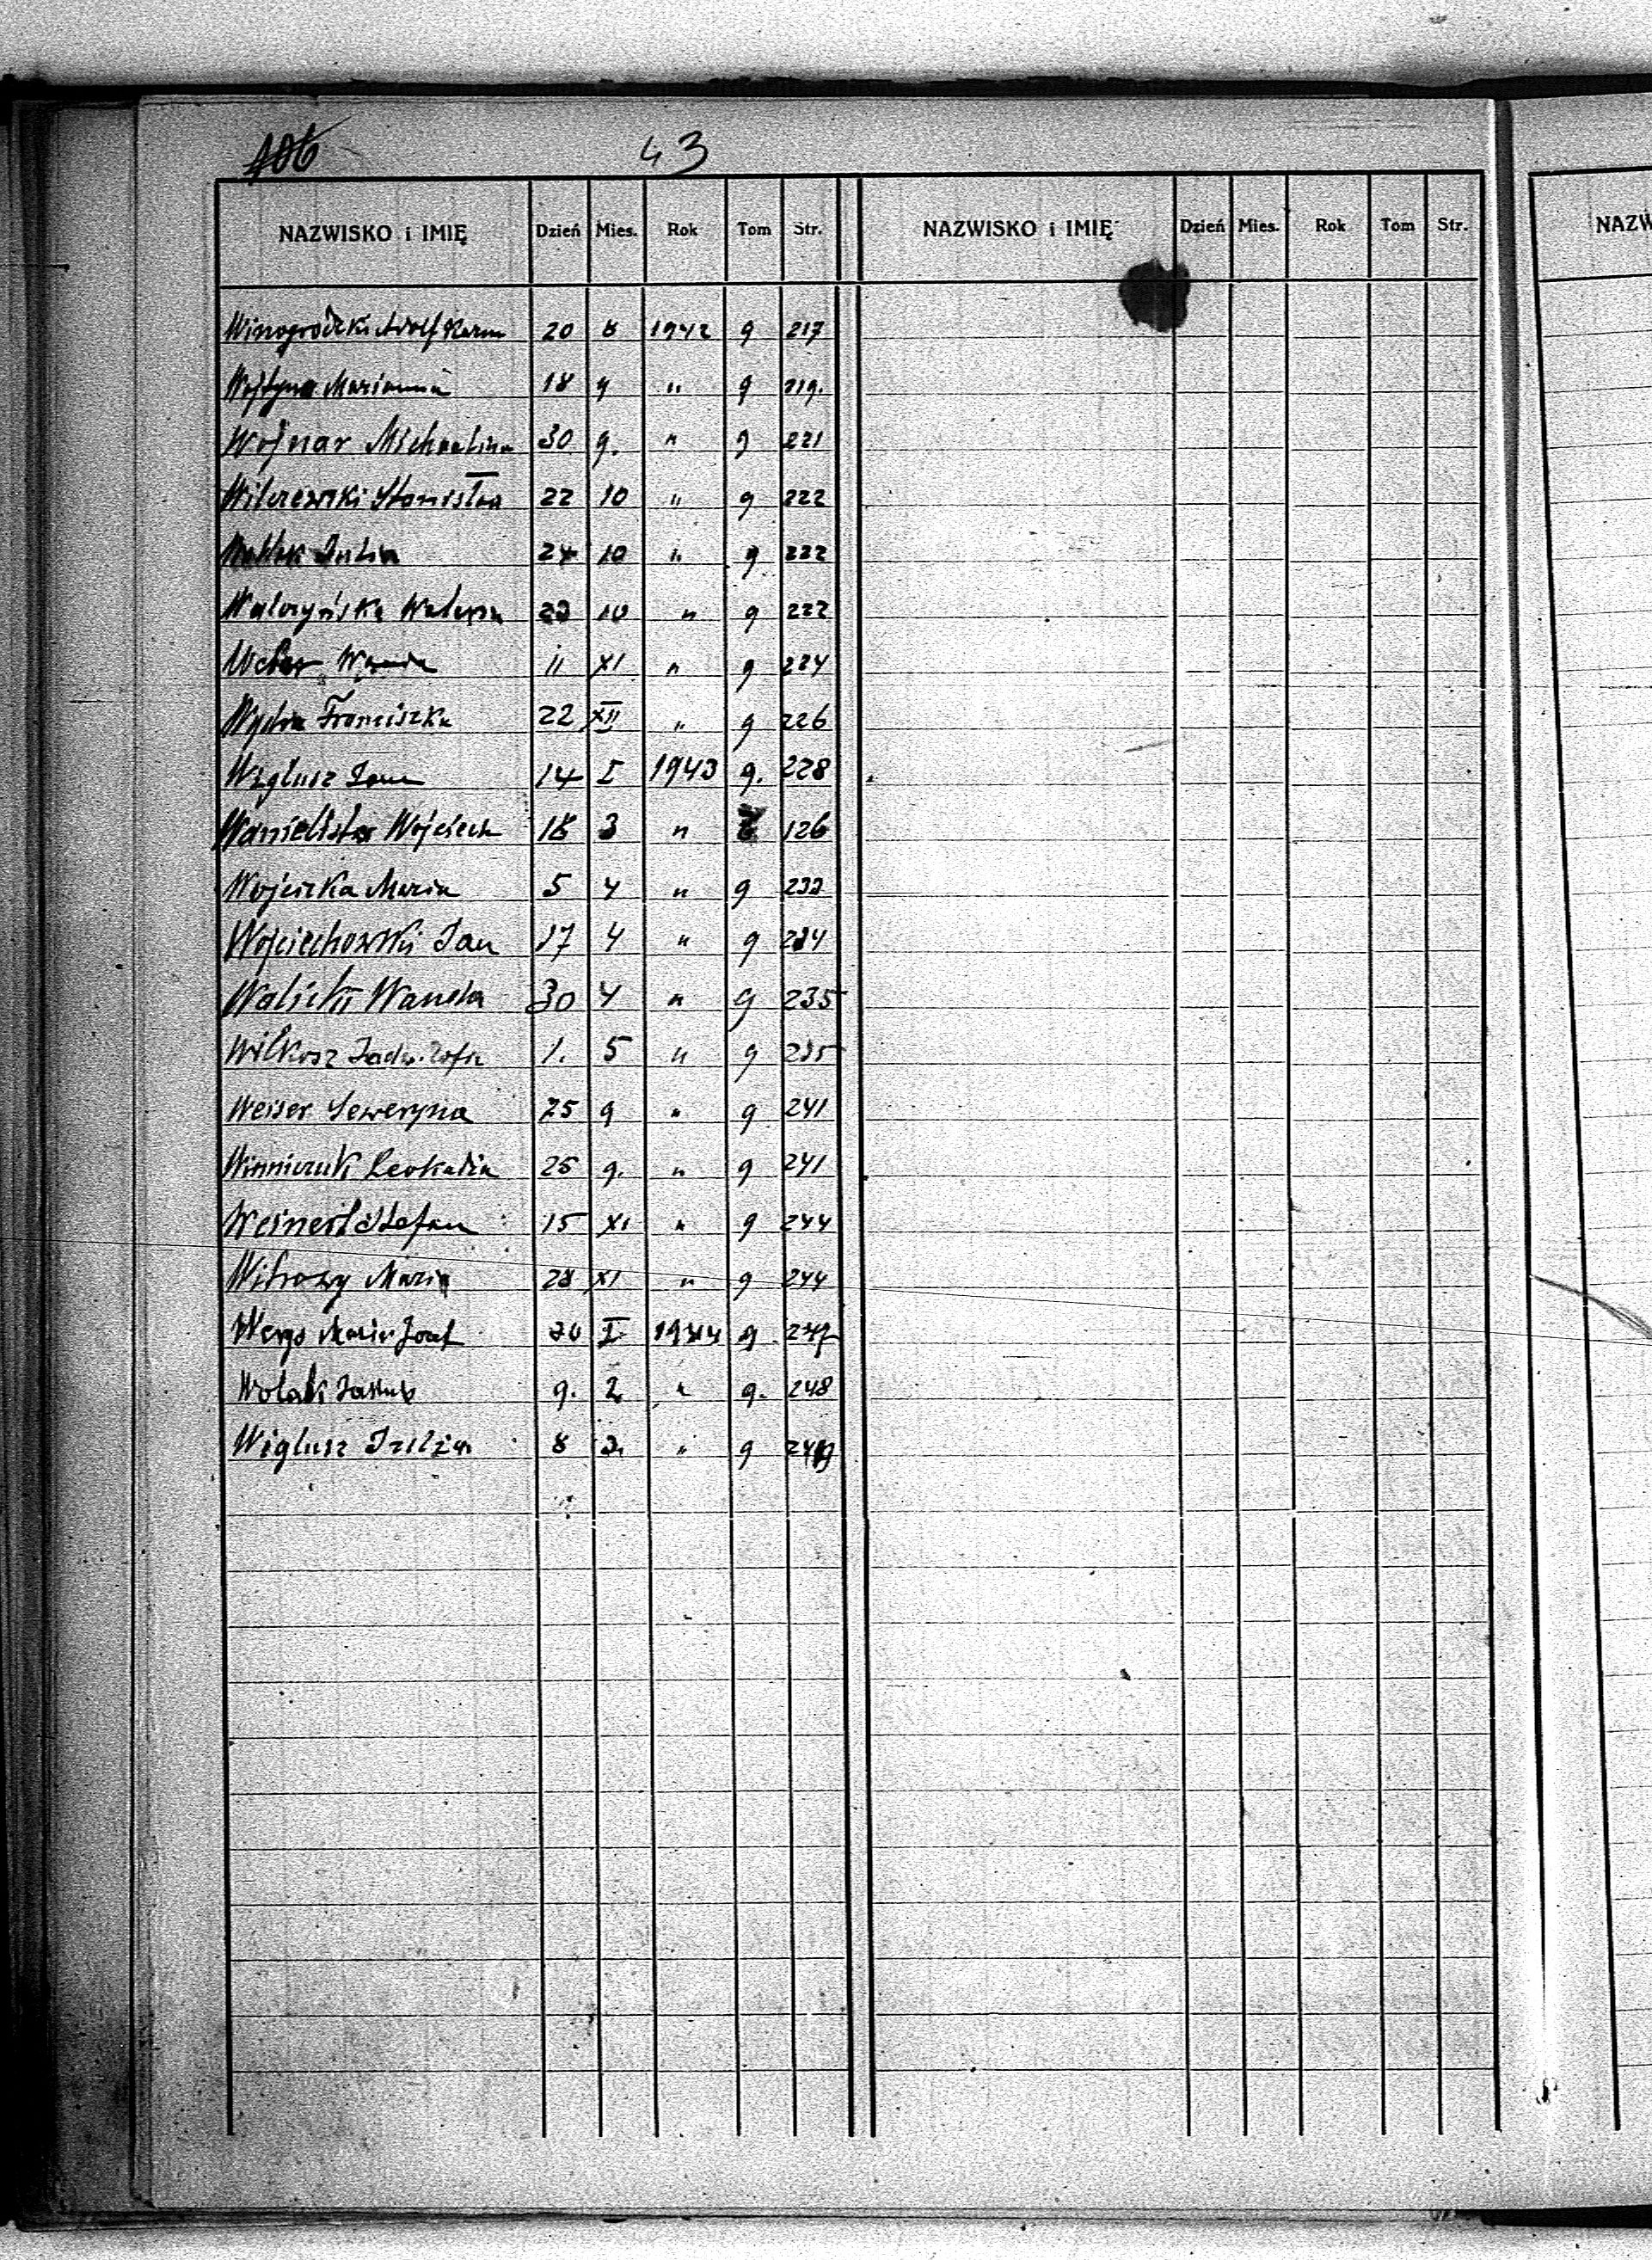 106 43
NAZWISKO i IMIĘ Dzień Mies. Rok Tom Str. NAZWISKO i IMIĘ Dzień Mies. Rok Tom Str. NAZW
Winogrodzki Adolf 20 8 1942 9 217
Wojtyna Marianna 18 9 " 9 219.
Wojnar Michalina 30 9. " 9 221
Wilczewski Stanisław 22 10 " 9 222
Julia 24 10 " 9 222
Walczyńska 10 " 9 222
Weber Wanda 11 XI " 9 224
Wydra Franciszka 22 XII " 9 226
Węglusz Jan 14 I 1943 9. 228
Wanielista Wojciech 18 3 " 126
Wojcicka Maria 5 4 " 9 233
Wojciechowski Jan 17 4 " 9 234
Walicki Wanda 30 4 " 9 235
Wilkosz Jadw. Zofia 1. 5 " 9 235
Weiser Seweryna 25 9 " 9 241
Winniczuk Leokadia 25 9. " 9 241
Weinert Stefan 15 XI " 9 244
Witrowy Maria 28 XI " 9 244
Maria Józef I 1944 9 247
Wolak Jakub 9. 2 " 9. 248
Wiglusz 8 2. " 9